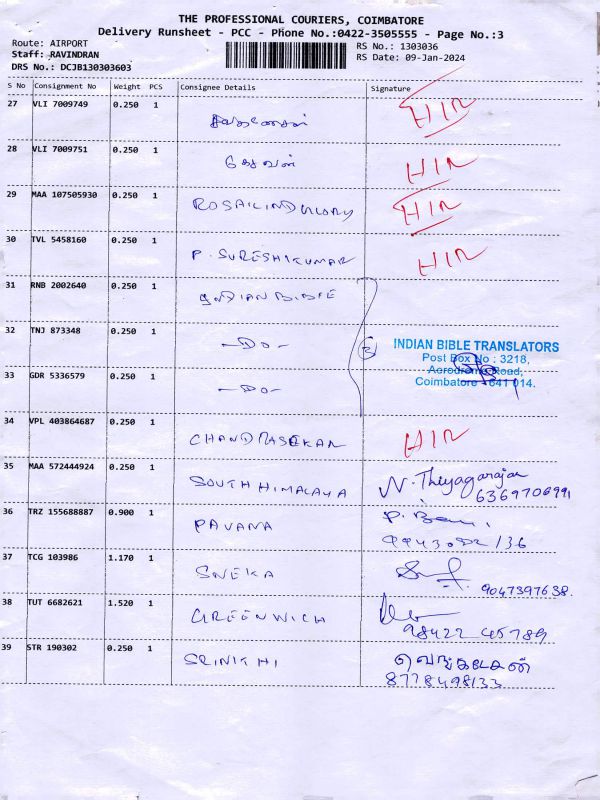 THE PROFESSIONAL COURIERS, COIMBATORE
Delivery Runsheet - PCC - Phone No.:0422-3505555 - Page No.:3
Route: AIRPORT
Staff: RAVINDRAN
DRS No.: DCJB130303603
RS No.: 1303036
RS Date: 09-Jan-2024
S No Consignment No Weight PCS Consignee Details Signature
27 VLI 7009749 0.250 1 HIR
28 VLI 7009751 0.250 1 HIR
29 MAA 107505930 0.250 1 HIR
30 TVL 5458160 0.250 1 P. SURESHKUMAR HIR
31 RNB 2002640 0.250 1 INDIAN BIBLE
32 TNJ 873348 0.250 1 -DO- 3
33 GDR 5336579 0.250 1 -DO-
INDIAN BIBLE TRANSLATORS
Post Box No : 3218,
Aerodrome Road,
Coimbatore - 641 014.
34 VPL 403864687 0.250 1 CHANDRASEKAR HIR
35 MAA 572444924 0.250 1 SOUTH HIMALAYA N. Theyagarajan
6369706991
36 TRZ 155688887 0.900 1 PAVANA
37 TCG 103986 1.170 1 SNEKA
9047397638.
38 TUT 6682621 1.520 1 GREENWICH
98422 45789
39 STR 190302 0.250 1 SRINITHI வெங்கடேசன்
8778498133